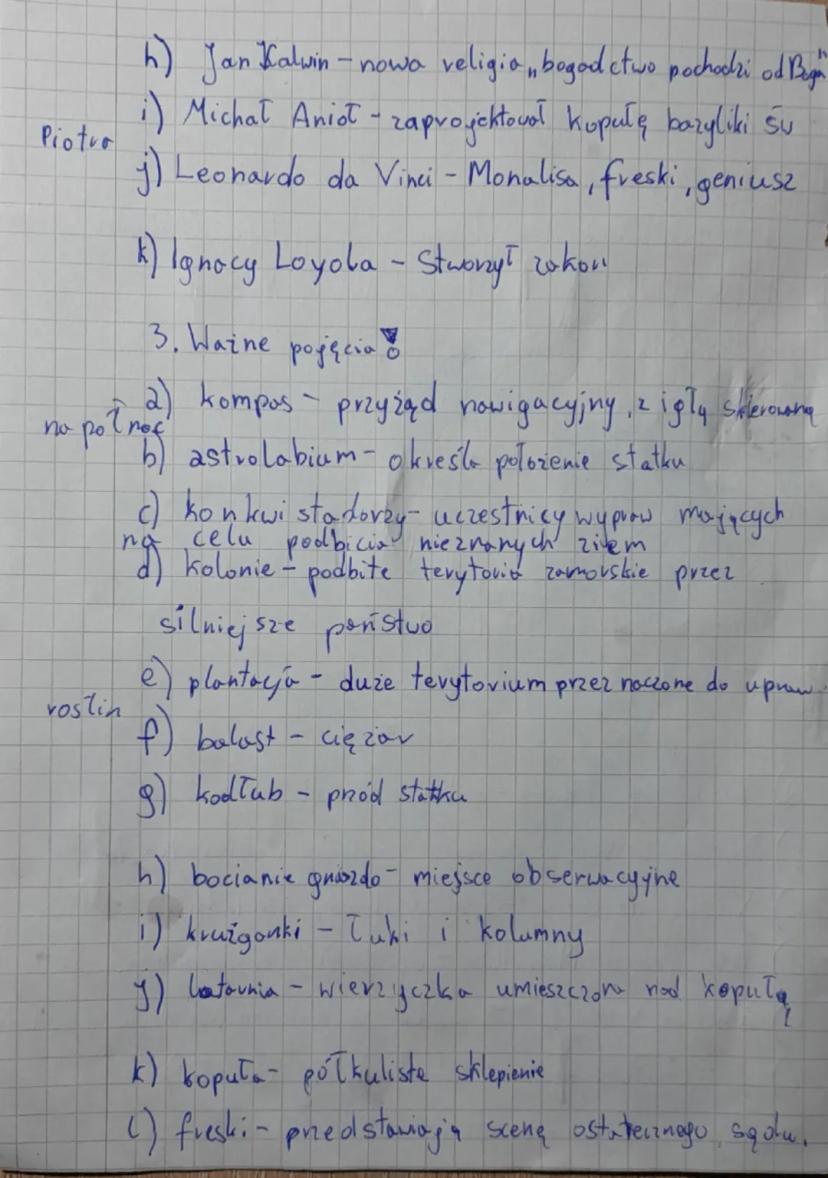 h) Jan Kalwin - nowa religia „bogadctwo pochodzi od Boga"
i) Michał Anioł - zaprojektował kopułę bazyliki św
Piotra
j) Leonardo da Vinci - Monalisa, freski, geniusz
k) Ignacy Loyola - Stworzył zakon
3. Ważne pojęcia!
a) kompas - przyżąd nawigacyjny, z igłą skierowaną
na północ
b) astrolabium - określa położenie statku
c) konkwistadorzy - uczestnicy wypraw mających
na celu podbicia nieznanych ziem
d) kolonie - podbite terytoria zamorskie przez
silniejsze państwo
e) plantacja - duże terytorium przeznaczone do upraw
roślin
f) balast - ciężar
g) kadłub - przód statku
h) bocianie gniazdo - miejsce obserwacyjne
i) krużganki - łuki i kolumny
j) latarnia - wierzyczka umieszczona nad kopułą
k) kopuła - półkuliste sklepienie
l) freski - przedstawiają scenę ostatecznego sądu.